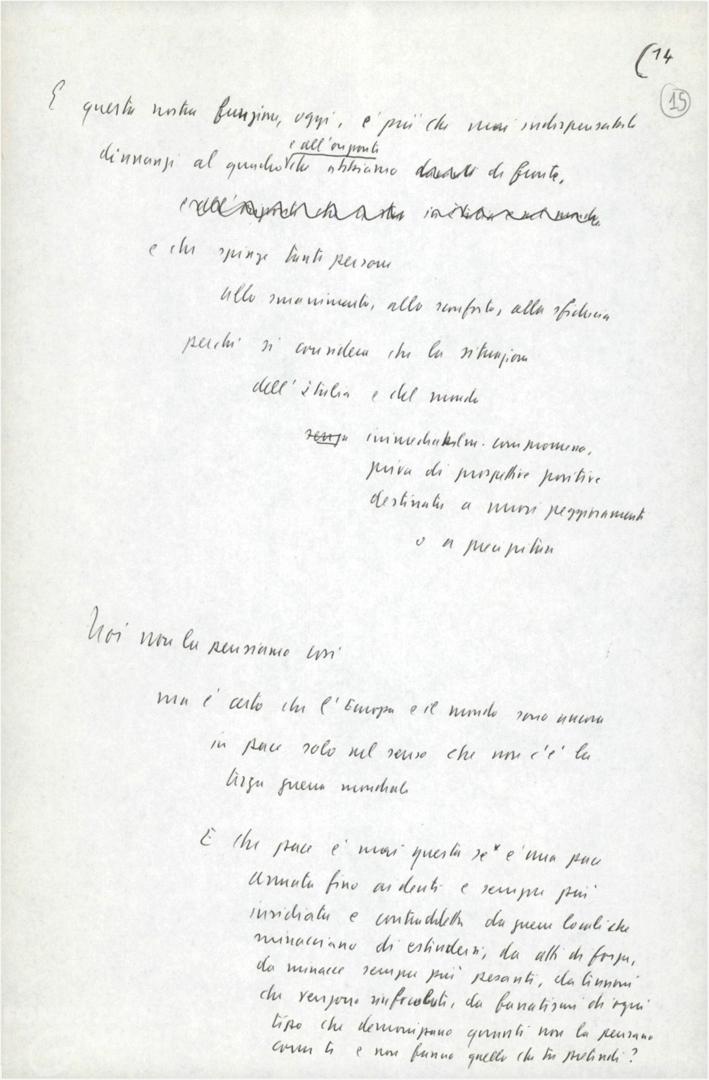 14
15
E questa nostra funzione, oggi, è più che mai indispensabile
e all'orizzonte
dinnanzi al quadro che abbiamo di fronte,
e che spinge tante persone
allo smarrimento, allo sconforto, alla sfiducia
perché si considera che la situazione
dell'Italia e del mondo
senza immediatam. compromessa,
priva di prospettive positive
destinata a nuovi peggioramenti
o a precipitare
Noi non la pensiamo così
ma è certo che l'Europa e il mondo sono ancora
in pace solo nel senso che non c'è la
terza guerra mondiale
E che pace è mai questa se è una pace
armata fino ai denti e sempre più
insidiata e contraddetta da guerre locali che
minacciano di estendersi, da atti di forza,
da minacce sempre più pesanti, da tensioni
che vengono rinfocolati, da fanatismi di ogni
tipo che demonizzano quanti non la pensano
come te e non fanno quello che tu pretendi?